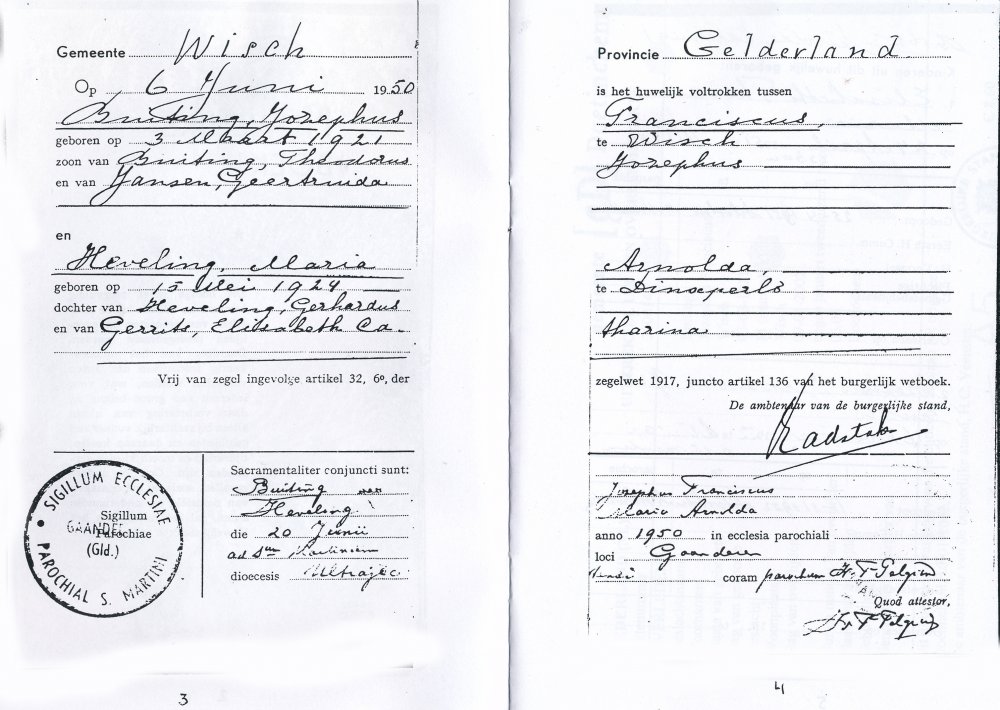 Gemeente Wisch
Op 6 Juni 1950
Buiting, Jozephus
geboren op 3 Maart 1921
zoon van Buiting, Theodorus
en van Jansen, Geertruida
en
Heveling, Maria
geboren op 15 Mei 1924
dochter van Heveling, Gerhardus
en van Gerrits, Elisabeth Ca-
Vrij van zegel ingevolge artikel 32, 6º, der
SIGILLUM ECCLESIAE
PAROCHIAL S. MARTINI
GAANDEL
Sigillum
Parochiae
(Gld.)
Sacramentaliter conjuncti sunt:
Buiting
Heveling
die 20 Junii
ad Sum
dioecesis Ultrajec.
3
Provincie Gelderland
is het huwelijk voltrokken tussen
Franciscus,
te Wisch
Jozephus
Arnolda,
te Dinxperlo
tharina
zegelwet 1917, juncto artikel 136 van het burgerlijk wetboek.
De ambtenaar van de burgerlijke stand,
Radstak
Josephus Franciscus
Maria Arnolda
anno 1950 in ecclesia parochiali
loci Gaanderen
coram parochum
Quod attestor,
4